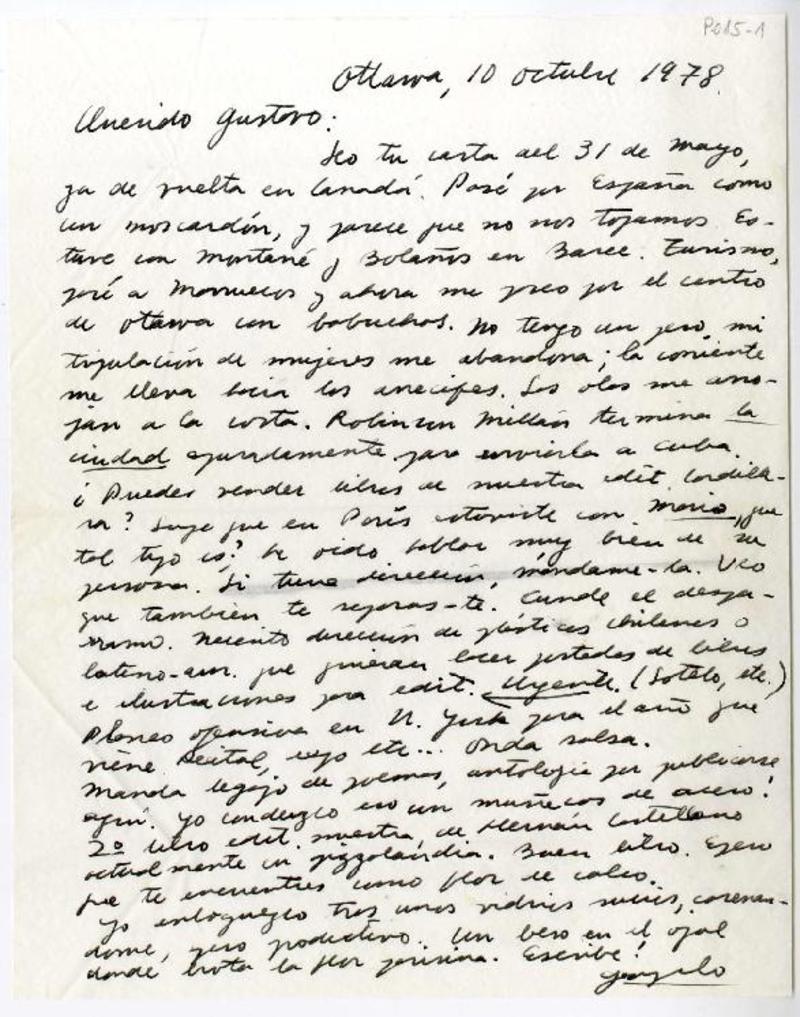 P015-1
Ottawa, 10 octubre 1978.
Querido Gustavo:
Leo tu carta del 31 de mayo,
ya de vuelta en Canadá. Pasé por España como
un moscardón, y parece que no nos topamos. Es-
tuve con Montané y Bolaños en Barce. Turismo,
pasé a Marruecos y ahora me paseo por el centro
de Otawa con babuchas. No tengo un peso, mi
tripulación de mujeres me abandona; la corriente
me lleva hacia los arrecifes. Las olas me arro-
jan a la costa. Robinson Millán termina la
ciudad apuradamente para enviarla a Cuba.
¿Puedes vender libros de nuestra edit. Cordille-
ra? Supe que en París estuviste con Mario, que
tal tipo es? He oido hablar muy bien de su
persona. Si tiene dirección, mándame-la. Veo
que también te separas-te. Cunde el despa-
rramo. Necesito dirección de plásticos chilenos o
latino-am. que quieran hacer portadas de libros
e ilustraciones para edit. Urgente. (Sotelo, etc.)
Planeo ofensiva en N. York para el año que
viene Recital, etc... Onda salsa.
Manda legajo de poemas, antología por publicarse
aquí. Yo conduzco eso un muñecos de acero!
2º libro edit. nuestra, de Hernán Castellano
actualmente en pizzolandia. Buen libro. Espero
que te encuentres como flor de
Yo enloquezco tras unos vidrios sucios,
dome, pero productivo. Un beso en el ojal
donde brota la flor parisina. Escribe!
Gonzalo